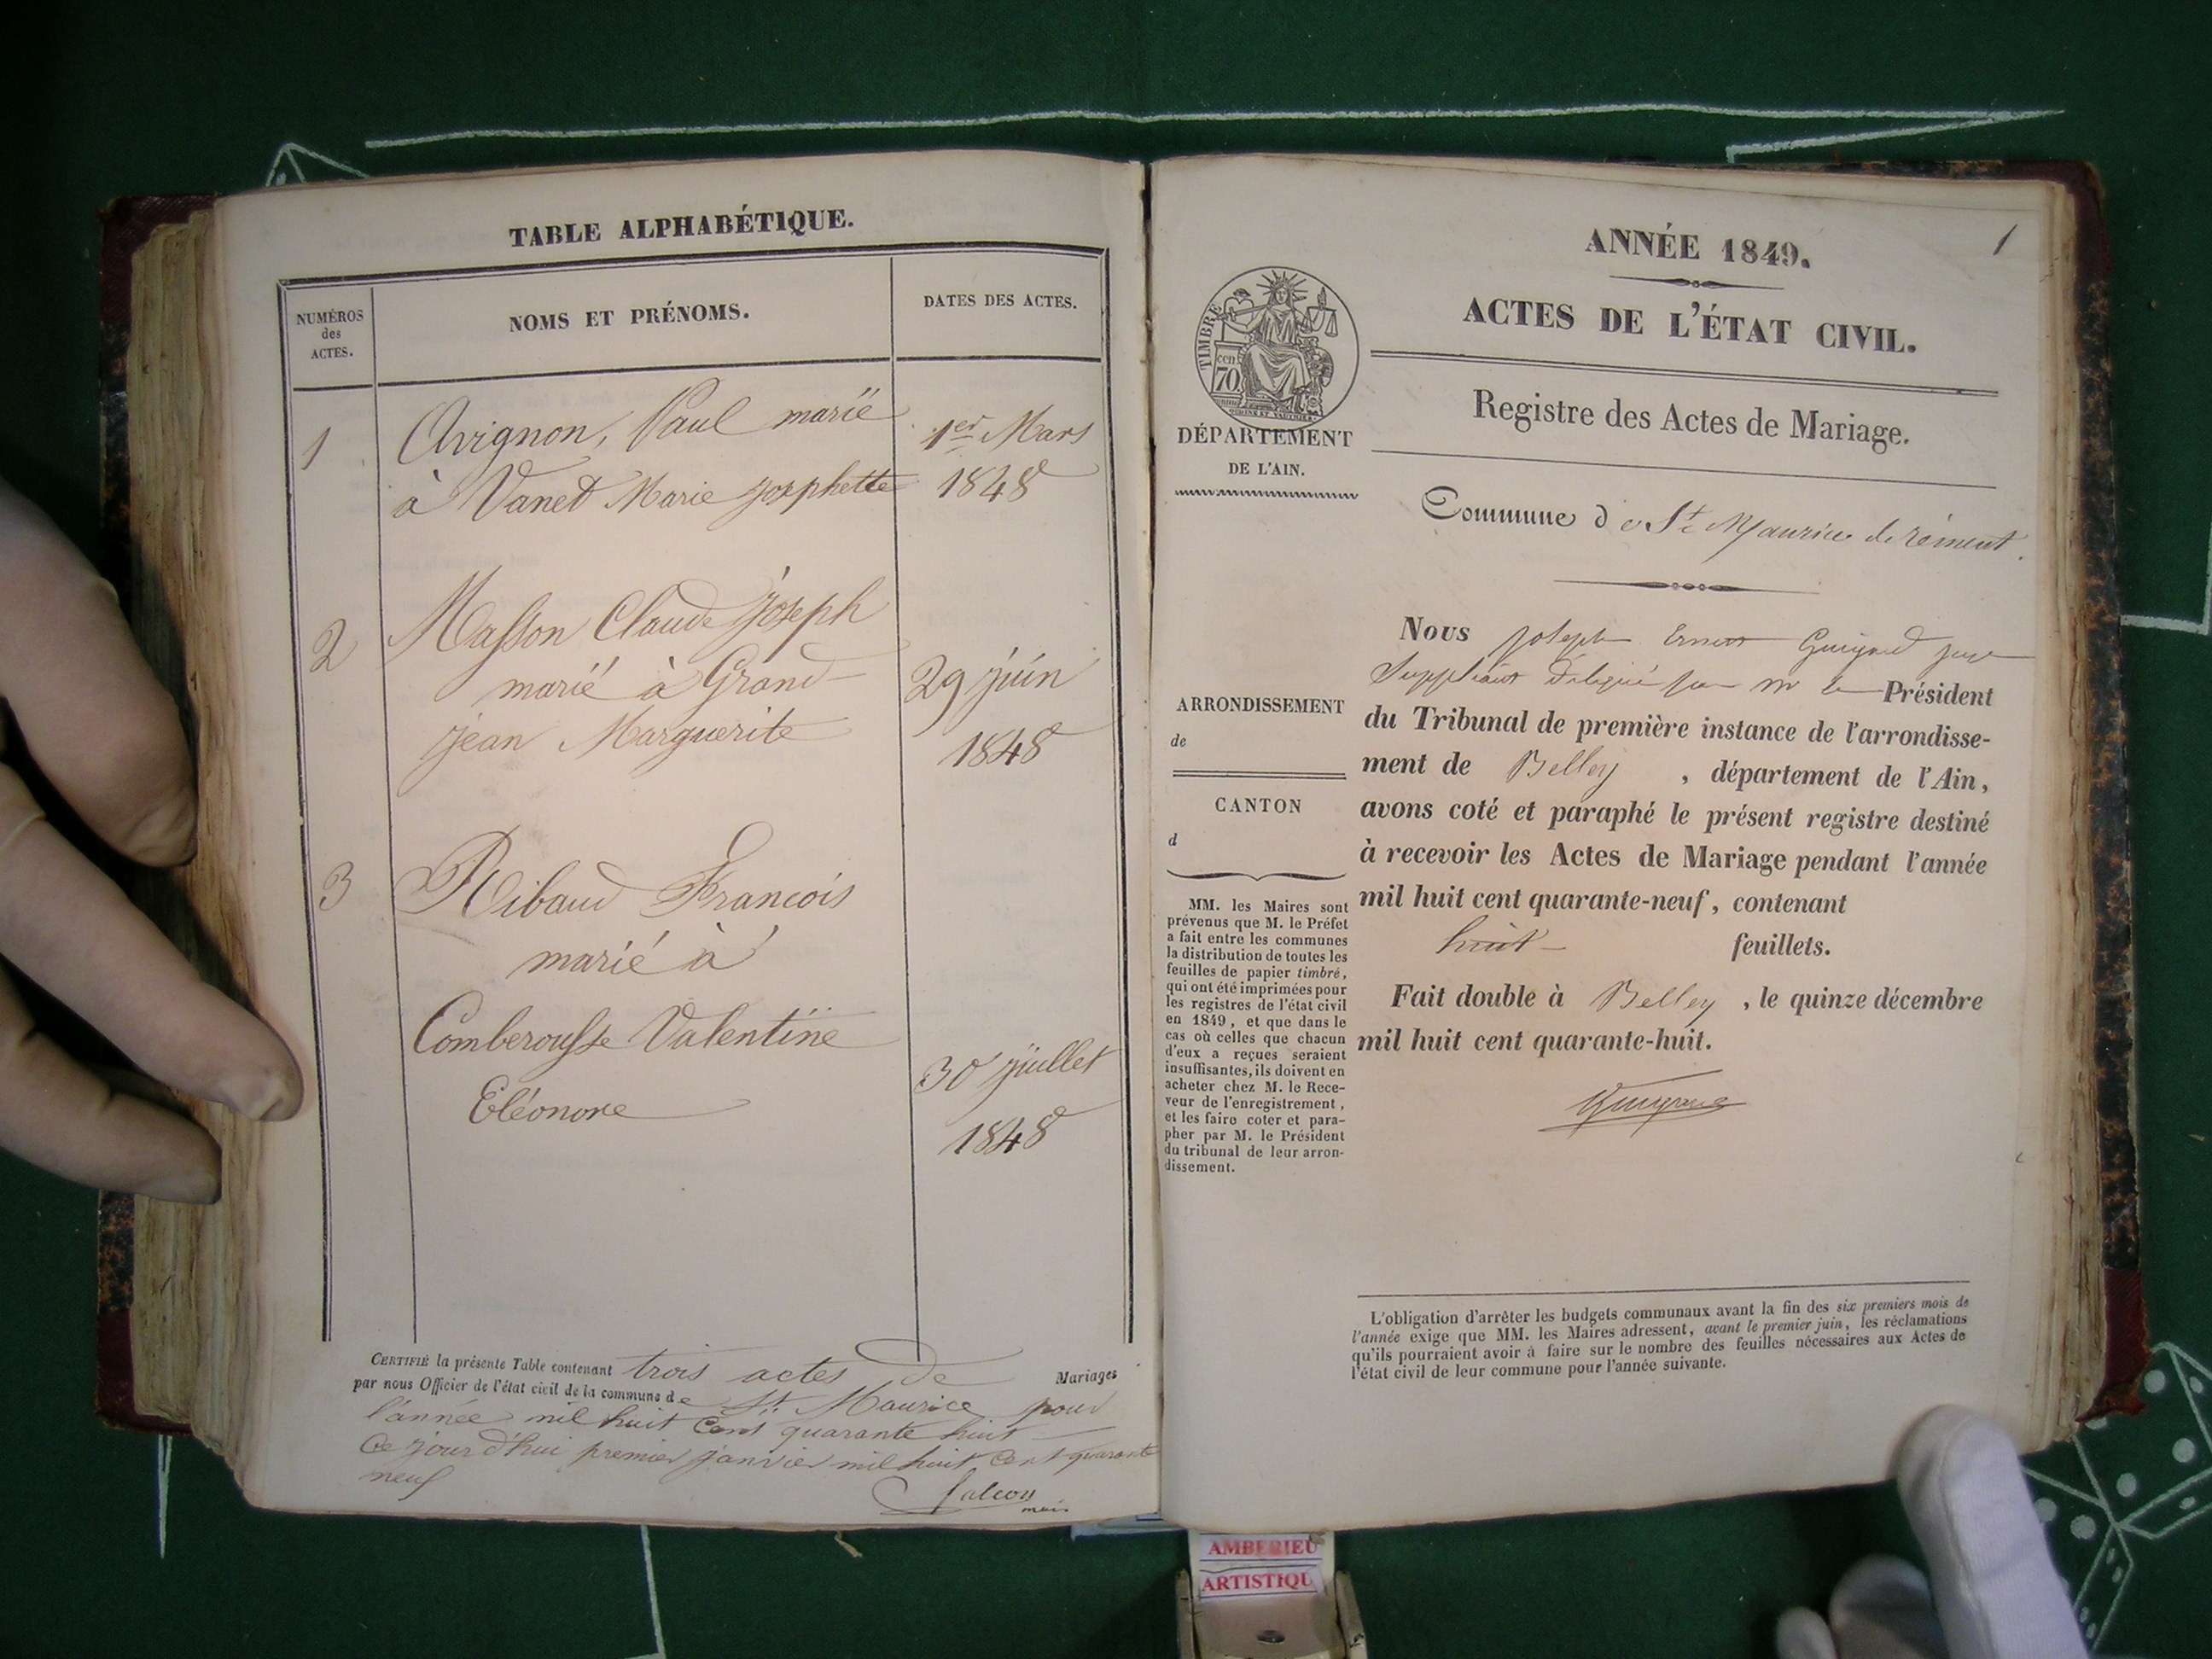 TABLE ALPHABÉTIQUE.
NUMÉROS
des
ACTES.
NOMS ET PRÉNOMS.
DATES DES ACTES.
1
Avignon, Paul marié
à Vanet Marie Josephette
1er Mars
1848
2
Masson Claude Joseph
marié à Grand
jean Marguerite
29 juin
1848
3
Ribaud Francois
marié à
Comberousse Valentine
Eléonore
30 juillet
1848
CERTIFIÉ la présente Table contenant trois actes de Mariages
par nous Officier de l'état civil de la commune de St Maurice pour
l'année mil huit Cent quarante huit
Ce jour d'hui premier janvier mil huit Cent quarante
neuf
falcon
maire
1
ANNÉE 1849.
ACTES DE L'ÉTAT CIVIL.
Registre des Actes de Mariage.
TIMBRE
70
DÉPARTEMENT
DE L'AIN.
Commune de St Maurice de rément.
ARRONDISSEMENT
de
CANTON
d
MM. les Maires sont
prévenus que M. le Préfet
a fait entre les communes
la distribution de toutes les
feuilles de papier timbré,
qui ont été imprimées pour
les registres de l'état civil
en 1849, et que dans le
cas où celles que chacun
d'eux a reçues seraient
insuffisantes, ils doivent en
acheter chez M. le Rece-
veur de l'enregistrement,
et les faire coter et para-
pher par M. le Président
du tribunal de leur arron-
dissement.
Nous Joseph Ernest Guigard juge
Suppléant Délégué par mr le Président
du Tribunal de première instance de l'arrondisse-
ment de Belley, département de l'Ain,
avons coté et paraphé le présent registre destiné
à recevoir les Actes de Mariage pendant l'année
mil huit cent quarante-neuf, contenant
huit feuillets.
Fait double à Belley, le quinze décembre
mil huit cent quarante-huit.
L'obligation d'arrêter les budgets communaux avant la fin des six premiers mois de
l'année exige que MM. les Maires adressent, avant le premier juin, les réclamations
qu'ils pourraient avoir à faire sur le nombre des feuilles nécessaires aux Actes de
l'état civil de leur commune pour l'année suivante.
AMBERIEU
ARTISTIQU